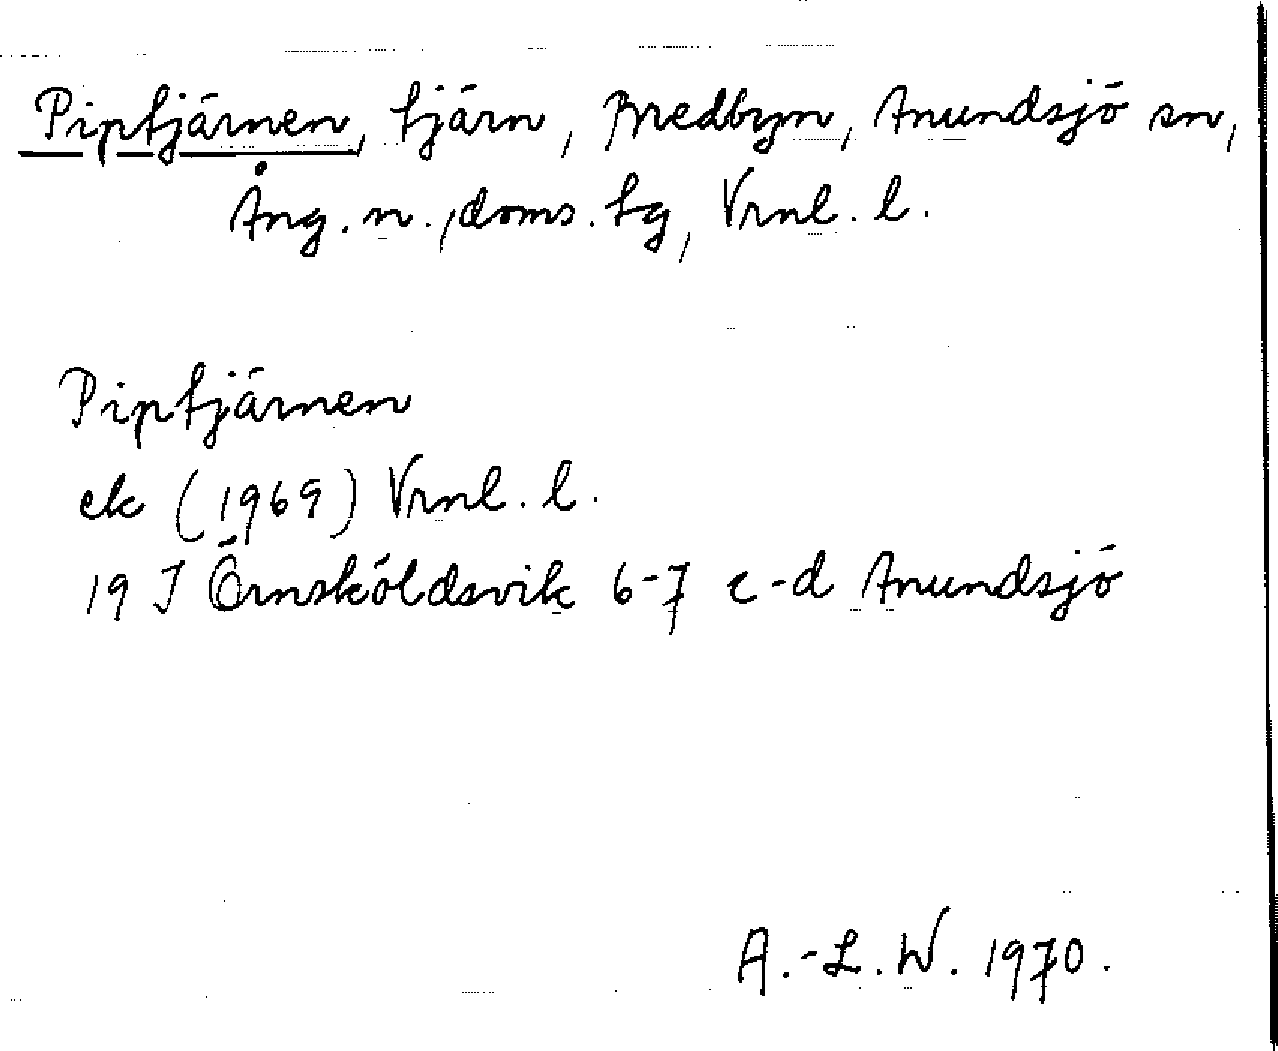 Piptjärnen, tjärn, Bredbyn, Anundsjö sn,
Ång. n., doms. tg, Vrnl. l.
Piptjärnen
ek (1969) Vrnl. l.
19 J Örnsköldsvik 6-7 c-d Anundsjö
A.-L. W. 1970.